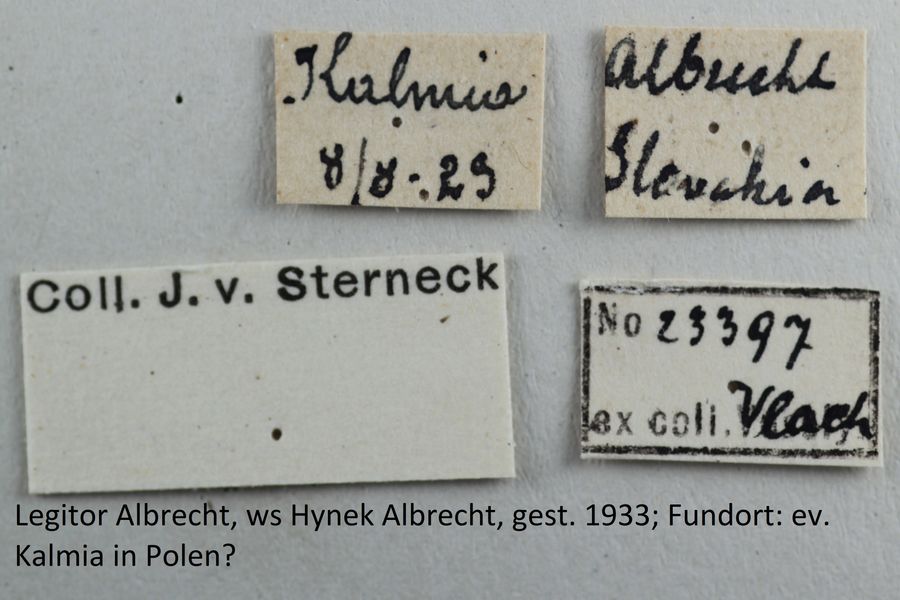 Kalmia
8/8.29
Albrecht
Slovakia
Coll. J. v. Sterneck
No 23397
ex coll. Vlach
Legitor Albrecht, ws Hynek Albrecht, gest. 1933; Fundort: ev.
Kalmia in Polen?